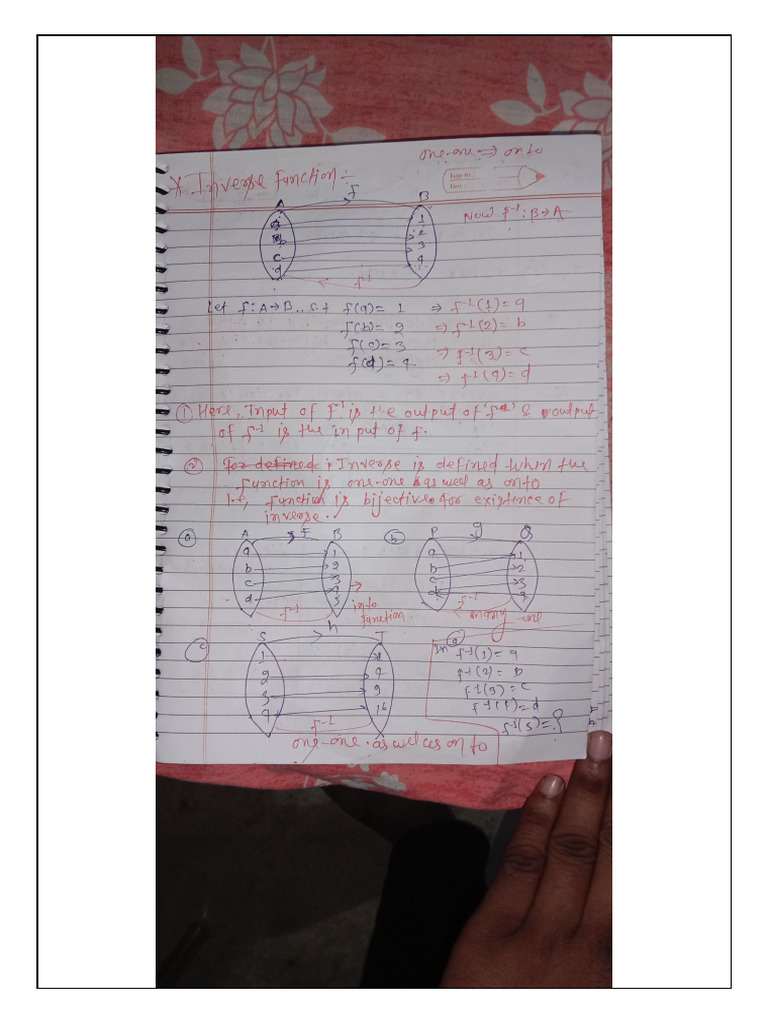 one-one ⇒ onto
* Inverse Function :-
A f B
Now f⁻¹: B→A
1
b 2
c 3
d 4
f⁻¹
Let f: A→B s.t f(a) = 1 ⇒ f⁻¹(1) = a
f(b) = 2 ⇒ f⁻¹(2) = b
f(c) = 3 ⇒ f⁻¹(3) = c
f(d) = 4 ⇒ f⁻¹(4) = d
① Here, Input of f⁻¹ is the output of 'f' & output
of f⁻¹ is the input of f.
② For defined : Inverse is defined when the
function is one-one as well as onto
i.e, function is bijective for existence of
inverse.
ⓐ A f B
a 1
b 2
c 3
d 4
5
f⁻¹
into
function
ⓑ P g Q
a 1
b 2
c 3
d 4
f⁻¹
many one
ⓒ S h T
1 1
2 4
3 9
4 16
f⁻¹
one-one. as well as onto
In ⓐ
f⁻¹(1) = a
f⁻¹(2) = b
f⁻¹(3) = c
f⁻¹(4) = d
f⁻¹(5) = ?